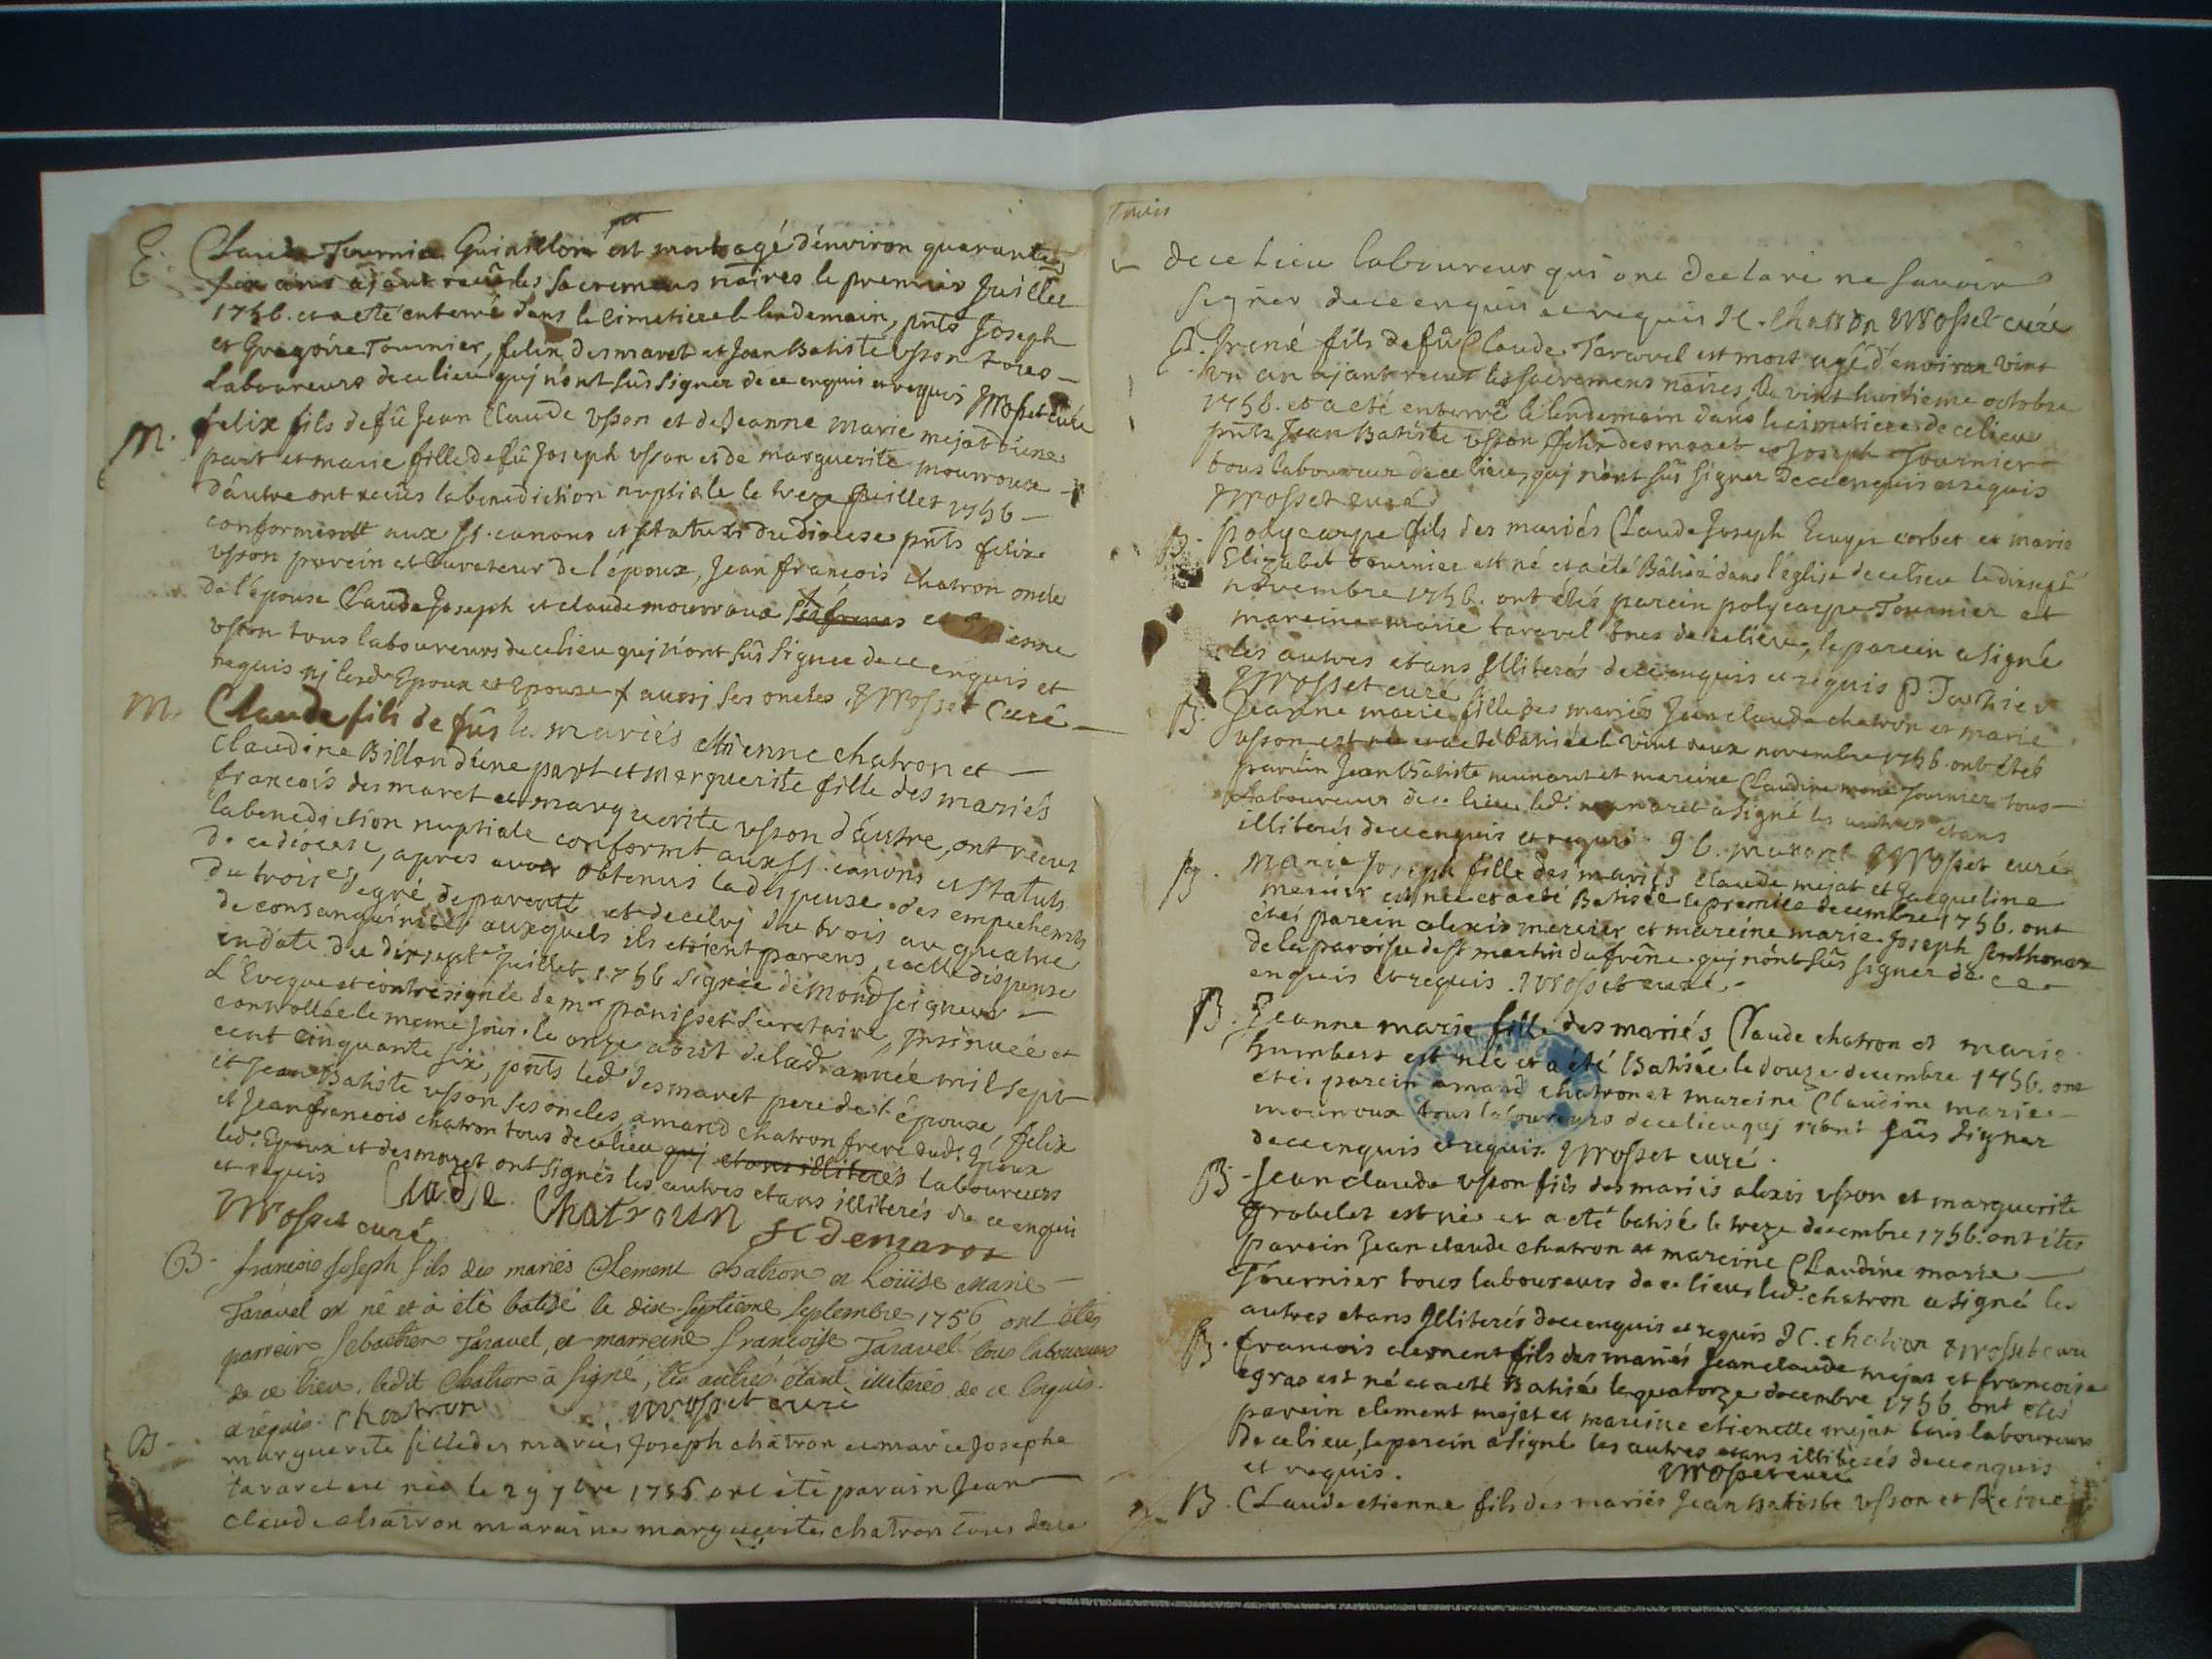 E. Claude Tournier Guinillon est mort agé d'environ quarante
six ans ajant recûs les sacremens n̄aires le premier Juillet
1756. et a eté enterré dans le cimetiere le lendemain, pnts Joseph
et Gregoire Tournier, felix desmaret et Jean Batiste vsson tous
Laboureurs de ce lieu quj n'ont sûs signer de ce enquis et requis Mosset curé
M. felix fils de fû Jean Claude vsson et de Jeanne marie mejat d'une
part et marie fille de fû Joseph vsson et de marguerite mourroux
d'autre ont recûs la benediction nuptiale le treze Juillet 1756
conformémt aux st. canons et statuts du diocese pnts felix
vsson parein et Curateur de l'époux, Jean françois chatron oncle
de l'épouse Claude Joseph et claude mourroux ses freres et etienne
vsson tous laboureurs de ce lieu quj n'ont sûs signer de ce enquis et
requis nj lesd. Epoux et Epouse + aussi ses oncles. Mosset Curé
M. Claude fils de fûs les mariés etienne chatron et
Claudine Billon d'une part et marguerite fille des mariés
francois des maret et marguerite vsson d'autre, ont recus
la benediction nuptiale conformt aux SS. canons et statuts
de ce diocese, apres avoir obtenus la dispense des empechemts
du troise degré de parenté et de celuj du trois au quatre
de consanguinité, auxquels ils etoient parens, lad. dispense
en date du dixsept Juillet 1756 signée de Mond Seigneur
L'Eveque et contresignée de mr panisset secretaire, Insinuée et
controllée le meme jour. le onze aoust de lad. année mil sept
cent cinquante six, pnts led. desmaret pere de l'épouse, felix
et Jean Batiste vsson ses oncles, amand chatron frere dud. Epoux
et Jean francois chatron tous de ce lieu quj etans illiterés laboureurs
led. Epoux et desmaret ont signés les autres etans illiterés de ce enquis
et requis Clade Chatroun
Mosset curé fr demarox
B. francois Joseph fils des mariés Clement Chatron et Loüise Marie
Taravel est né et à été batisé le dix septieme septembre 1756 ont étés
parrein Sebastien Taravel, et marreine francoise Taravel tous laboureurs
de ce lieu, ledit Chatron à signé, les autres étant illiterés de ce Enquis
et requis. Chatron Mosset curé
B. marguerite fille des mariés Joseph chatron et marie Josephe
taravel est née le 29 7bre 1756 ont été parain Jean
claude chatron maraine marguerite chatron tous de ce
de ce Lieu laboureur qui ont declaré ne savoir
signer de ce enquis et requis JC. Chatron Mosset curé
E. Irené fils de fû Claude Taravel est mort agé d'environ vint
vn an ajant recus les sacremens n̄aires, le vint huitieme octobre
1756. et a eté enterré le lendemain dans le cimetiere de ce lieu
pnts Jean Batiste vsson felix desmaret et Joseph Tournier
tous laboureur de ce lieu, quj n'ont sûs signer de ce enquis et requis
Mosset curé
B. polycarpe fils des mariés Claude Joseph corbet et marie
Elizabet tournier est né et a été Bâtisé dans l'église de ce lieu le dixsept
novembre 1756. ont étés parein polycarpe Tournier et
mareine marie taravel tous de ce lieu, le parein a signé
les autres etans Illiterés de ce enquis et requis P. Tournier
Mosset curé
B. Jeanne marie fille des mariés Jean claude chatron et marie
vsson est née et a eté batisée le vint deux novembre 1756 ont étés
parein Jean Batiste munaret et mareine Claudine marie Tournier tous
Laboureurs de ce lieu led. munaret a signé les autres etans
illiterés de ce enquis et requis J b. munaret Mosset curé
B. Marie Joseph fille des mariés claude mejat et Jacqueline
mercier est née et a eté Batisée le premier decembre 1756. ont
étés parein alexis mercier et mareine marie Joseph
de la paroisse de st martin du frêne quj n'ont sûs signer de ce
enquis et requis. Mosset curé.
B. Jeanne marie fille des mariés Claude chatron et marie
humbert est née et a été Batisée le douze decembre 1756. ont
étés parein amand chatron et mareine Claudine marie
mourroux tous laboureurs de ce lieu quj n'ont sûs signer
de ce enquis et requis. Mosset curé.
B. Jean claude vsson fils des mariés alexis vsson et marguerite
grobelet est né et a eté batisé le treze decembre 1756. ont étés
parein Jean claude chatron et mareine Claudine marie
Tournier tous laboureurs de ce lieu, led. chatron a signé les
autres etans Illiterés de ce enquis et requis JC. chatron Mosset curé
B. francois clement fils des mariés Jean claude mejat et francoise
egraz est né et a eté Batisé le quatorze decembre 1756 ont étés
parein clement mejat et mareine etienette mejat tous laboureurs
de ce lieu, le parein a signé les autres etans illiterés de ce enquis
et requis. Mosset curé
B. Claude etienne fils des mariés Jean Batiste vsson et Reine